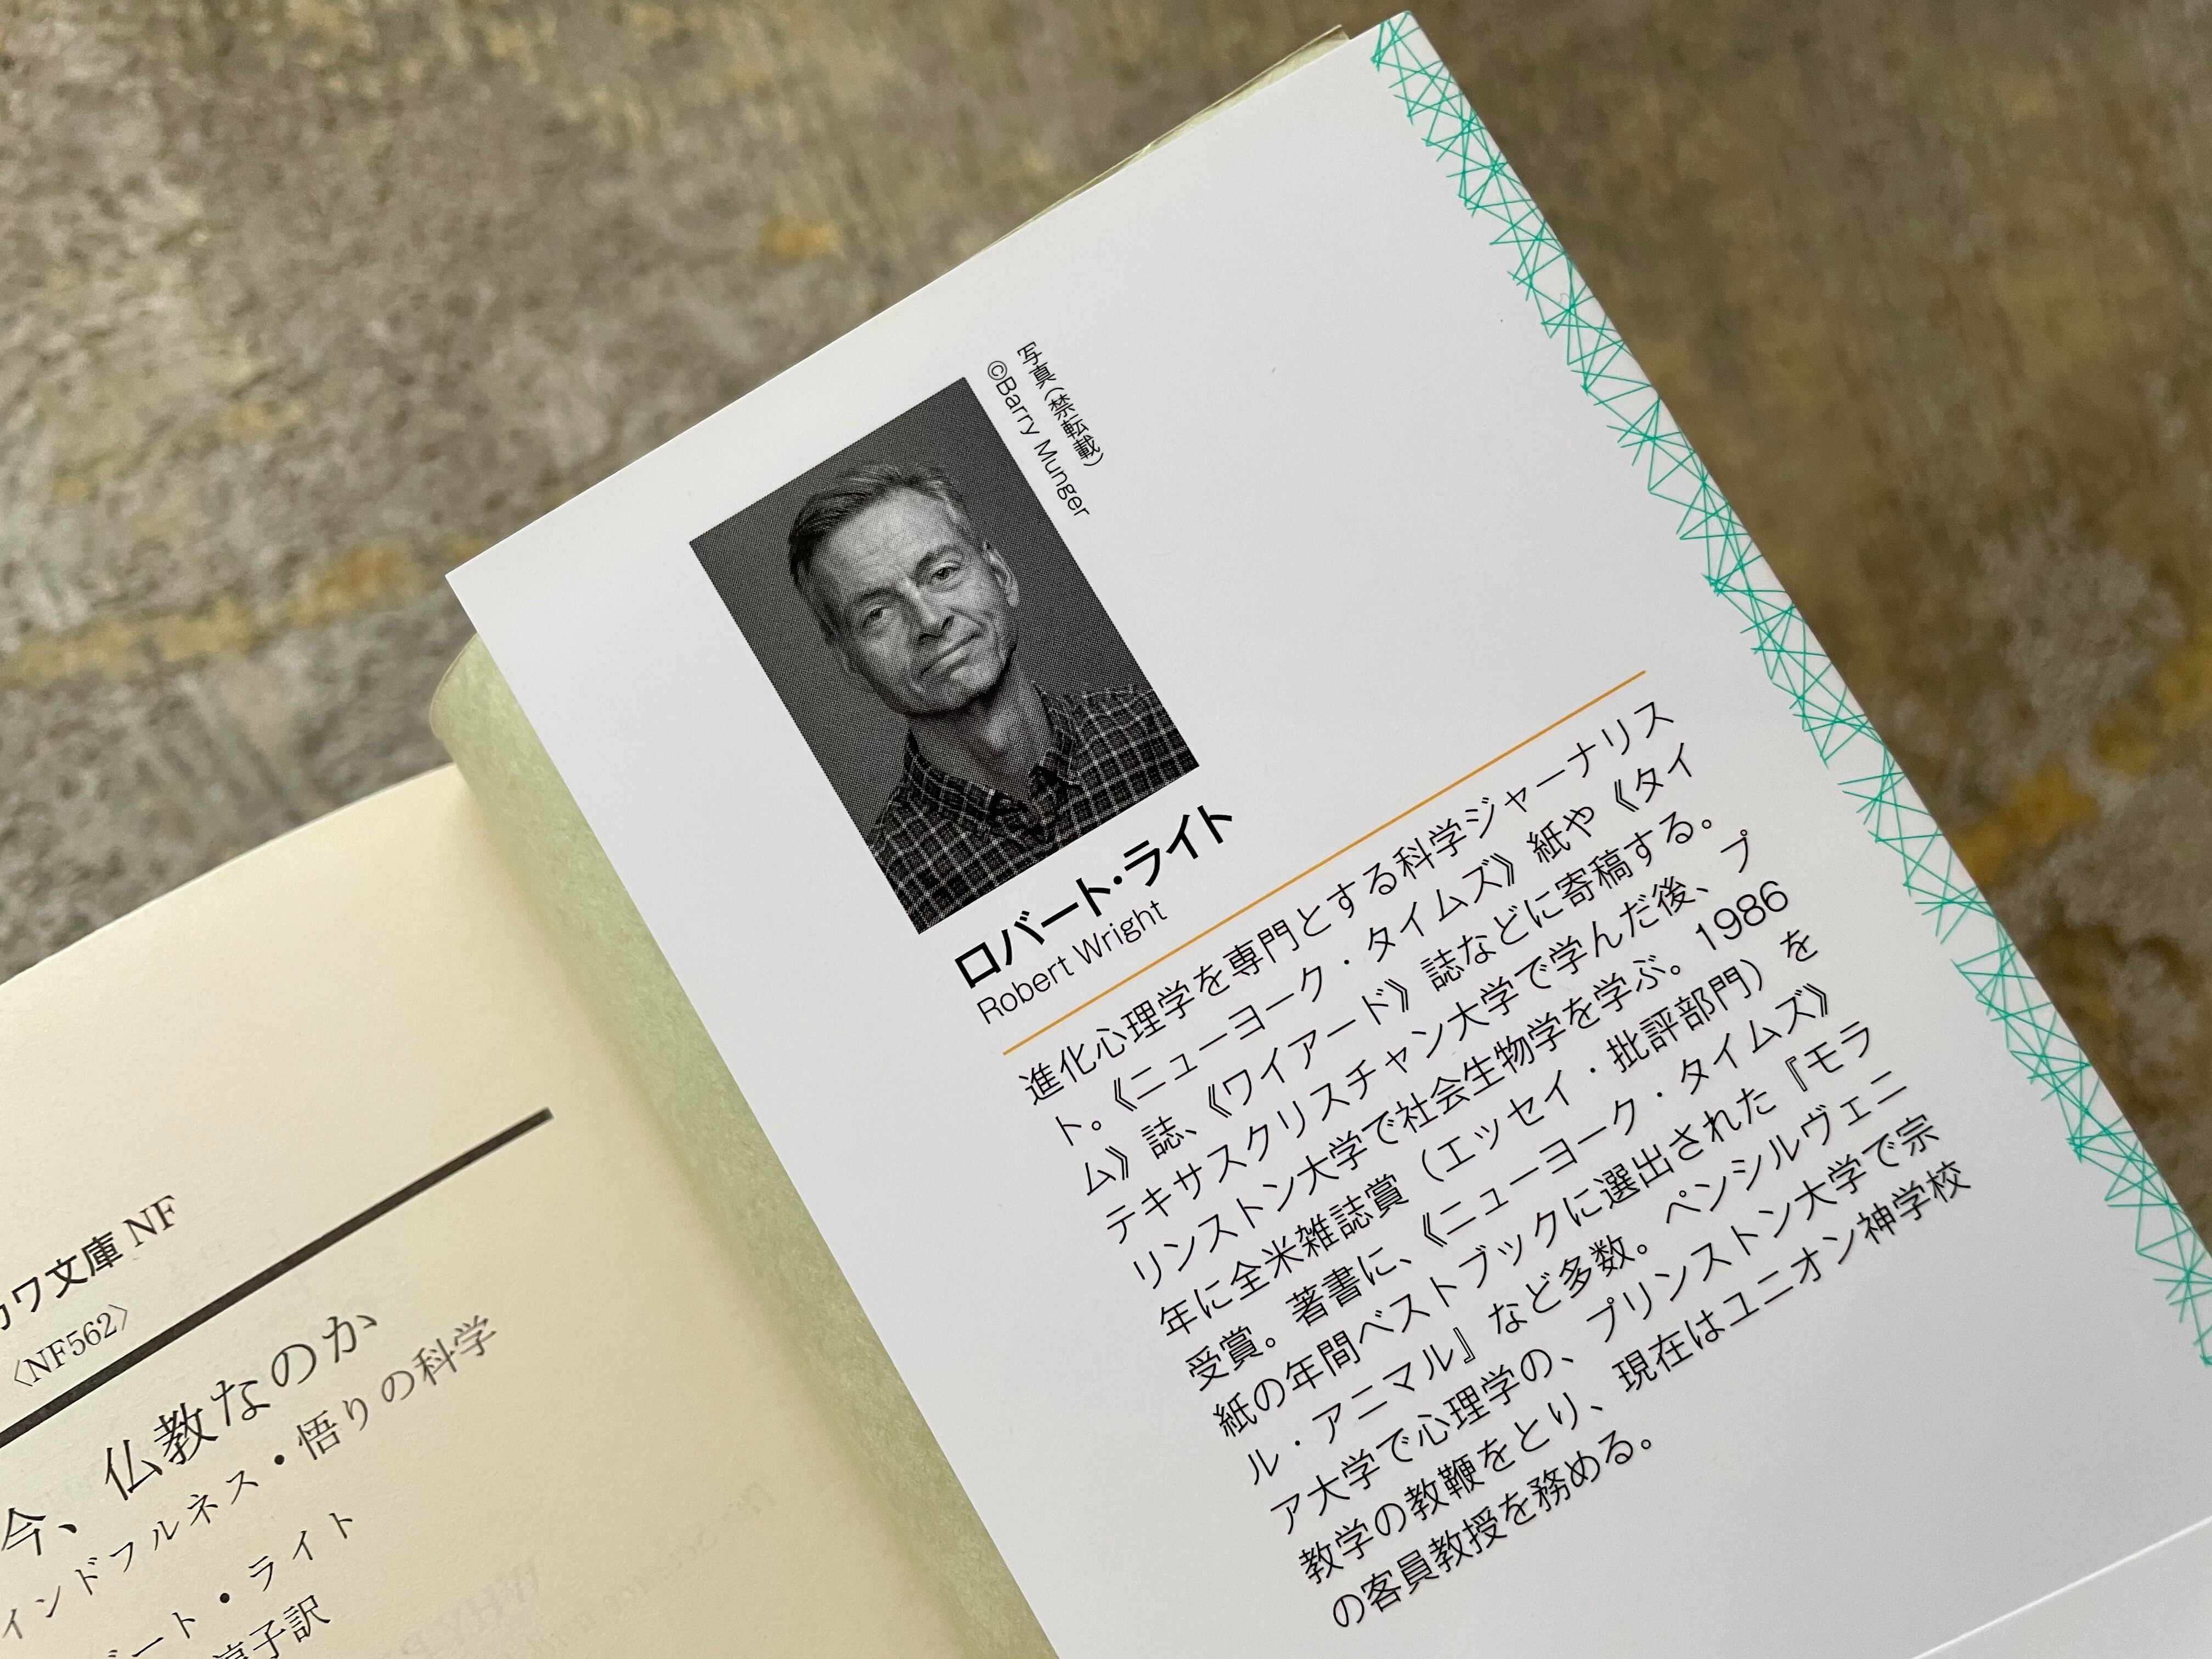 写真（禁転載）
©Barry Munger
ロバート・ライト
Robert Wright
進化心理学を専門とする科学ジャーナリス
ト。《ニューヨーク・タイムズ》紙や《タイ
ム》誌、《ワイアード》誌などに寄稿する。
テキサスクリスチャン大学で学んだ後、プ
リンストン大学で社会生物学を学ぶ。1986
年に全米雑誌賞（エッセイ・批評部門）を
受賞。著書に、《ニューヨーク・タイムズ》
紙の年間ベストブックに選出された『モラ
ル・アニマル』など多数。ペンシルヴェニ
ア大学で心理学の、プリンストン大学で宗
教学の教鞭をとり、現在はユニオン神学校
の客員教授を務める。
カワ文庫 NF
〈NF562〉
今、仏教なのか
インドフルネス・悟りの科学
バート・ライト
淳子訳